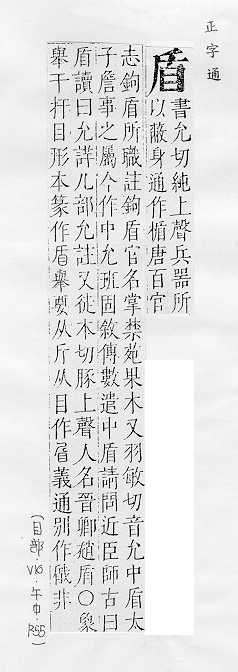 正字通
盾
書允切純上聲兵器所
以蔽身通作楯唐百官
志鉤盾所職註鉤盾官名掌禁苑果木又羽敏切音允中盾太
子詹事之屬今作中允班固敘傳數遣中盾請問近臣師古曰
盾讀曰允詳儿部允註又徒本切豚上聲人名晉卿趙盾○象
舉干扞目形本篆作盾舉要从斤从目作㫁義通別作瞂非
(目部 VK5.午中.P.55)